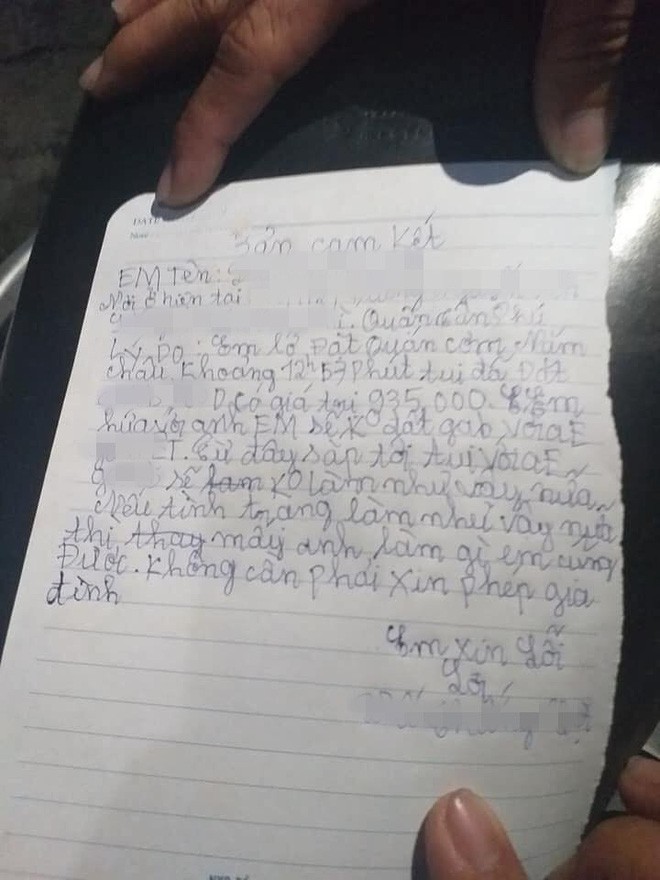 DATE
Bản cam kết
EM Tên:
Nơi ở hiện tại
Quận Tân Phú
Lý Do: Em lỡ Đặt Quán cơm Năm
châu Khoảng 12h57 Phút tui đã Đặt
D. Có giá trị 935,000. Em
hứa với anh EM sẽ Ko đặt với aE
T. Từ đây sắp tới tui với aE
sẽ Ko làm như vậy nữa
Nếu tình trạng làm như vậy nữa
thì thay mấy anh làm gì em cũng
Được. Không cần phải xin phép gia
đình
Em xin Lỗi